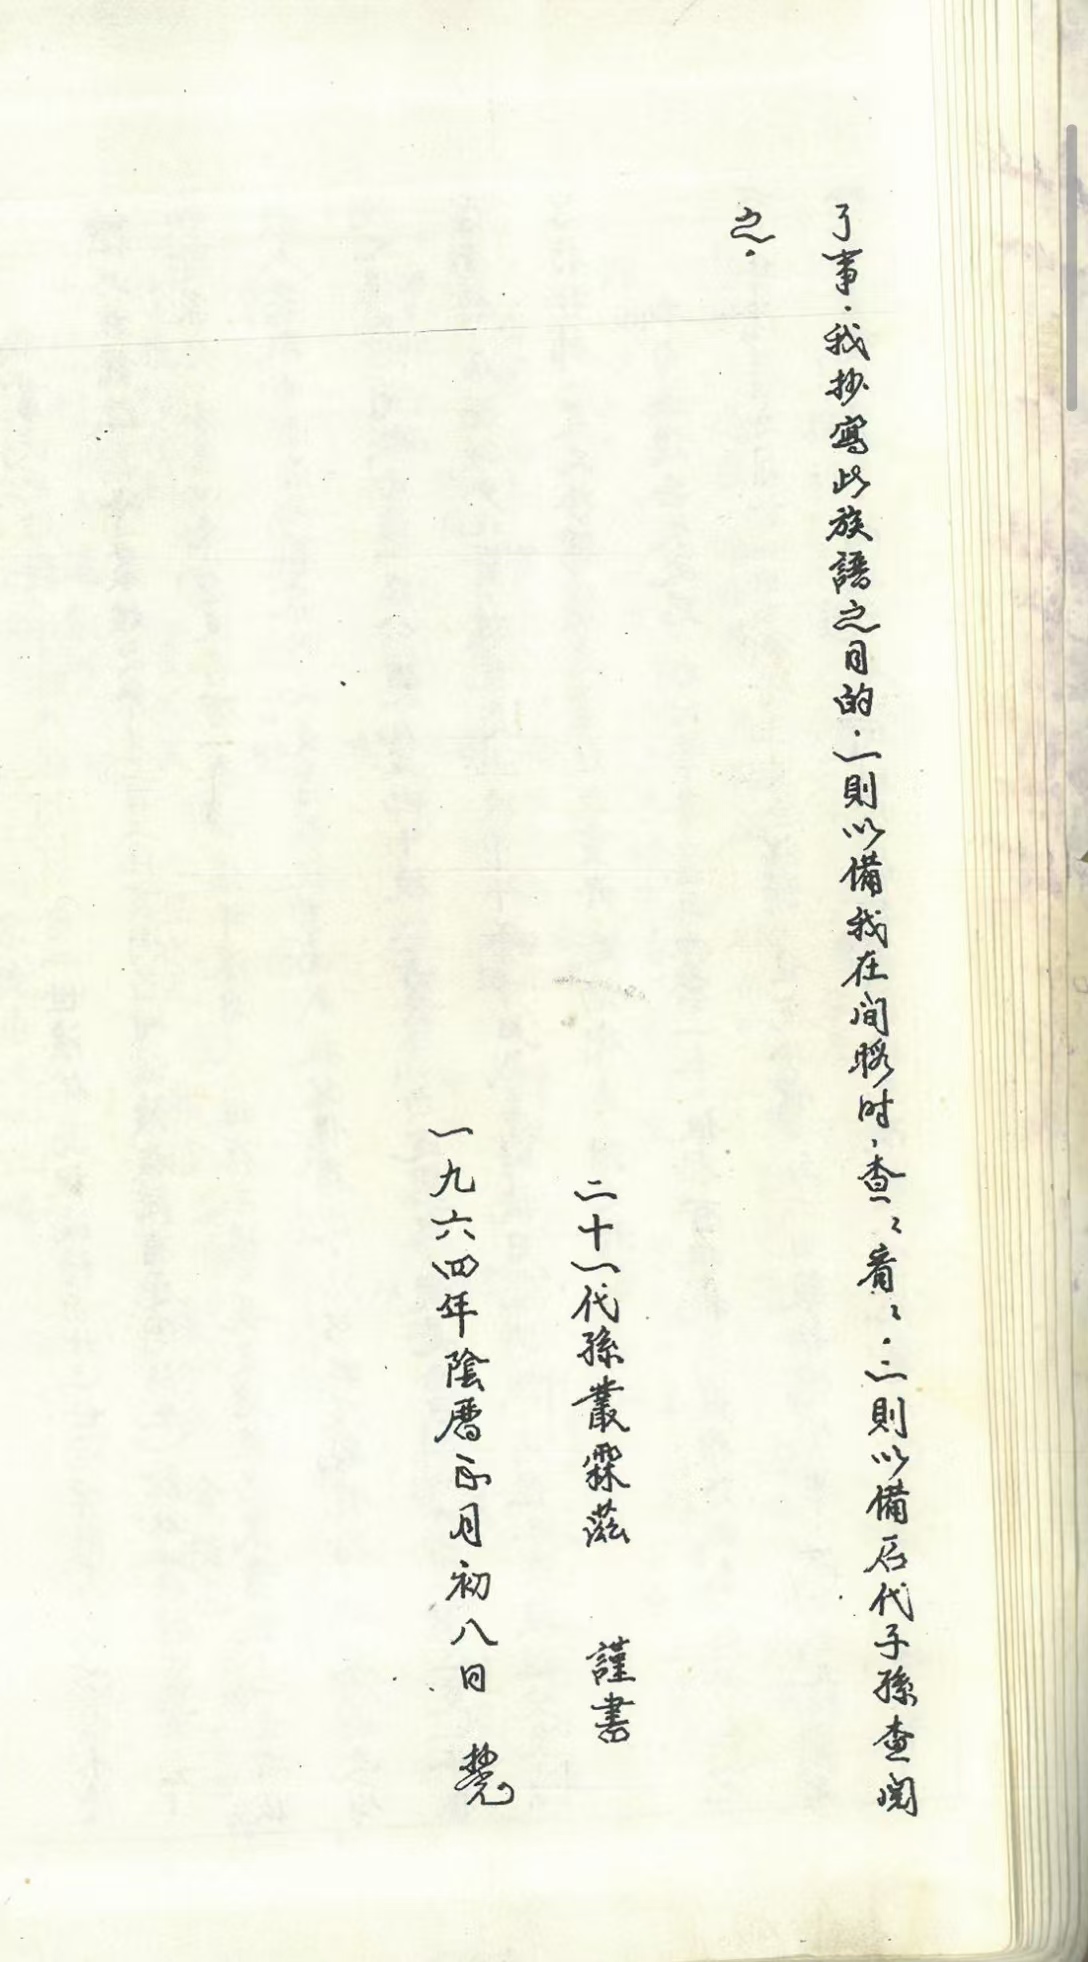 了事．我抄寫此族譜之目的．一則以備我在间暇时，查〻看〻．二則以備后代子孫查閲
之．
二十一代孫叢霖滋　謹書
一九六四年陰曆正月初八日